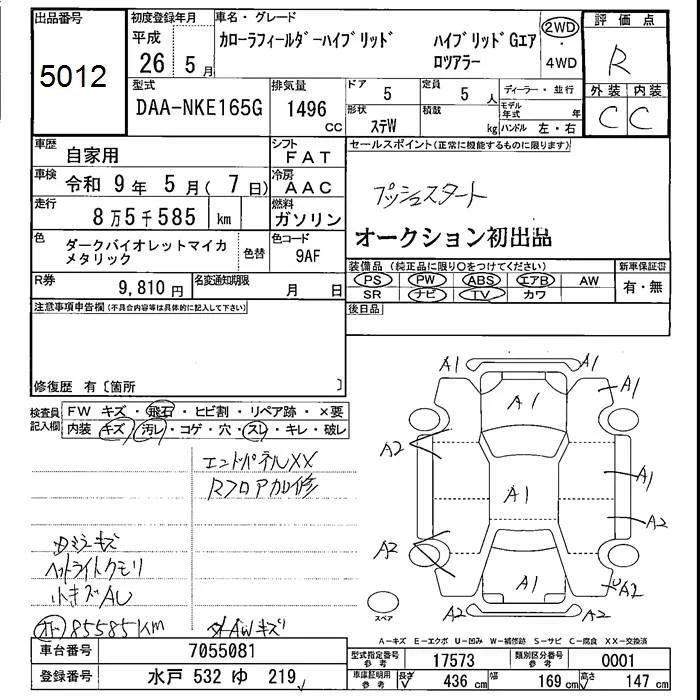 出品番号
5012
初度登録年月
平成
26 5月
車名・グレード
カローラフィールダーハイブリッド
ハイブリッドGエア
ロツアラー
2WD
・
4WD
評価点
R
外装 内装
C C
型式
DAA-NKE165G
排気量
1496
cc
ドア
5
定員
5 人
形状
ステW
積載
kg
ディーラー・並行
モデル
年式 年
ハンドル 左・右
車歴
自家用
シフト
FAT
車検
令和 9年 5月( 7日)
冷房
AAC
走行
8万5千585 km
燃料
ガソリン
色
ダークバイオレットマイカ
メタリック
色替
色コード
9AF
R券
9,810円
名変通知期限
月 日
セールスポイント(正常に機能するものに限ります)
プッシュスタート
オークション初出品
装備品(純正品に限り○をつけてください)
PS PW ABS エアB AW
SR ナビ TV カワ
新車保証書
有・無
後日品
注意事項申告欄(不具合内容等は具体的に記入して下さい)
修復歴 有〔箇所 〕
検査員
記入欄
FW キズ・飛石・ヒビ割・リペア跡・×要
内装 キズ・汚レ・コゲ・穴・スレ・キレ・破レ
エンドパネルXX
Rフロア加修
ヘットライトクモリ
小キズAU
85585KM
AWキズ
A1
A1
A1
A1
A2
A1
A1
A2
A2
A1
A2
A2
A2
スペア
A-キズ E-エクボ U-凹み W-補修跡 S-サビ C-腐食 XX-交換済
車台番号
7055081
登録番号
水戸 532 ゆ 219
型式指定番号
参考
17573
類別区分番号
参考
0001
車庫証明用
参考
長さ
436 cm
幅
169 cm
高さ
147 cm